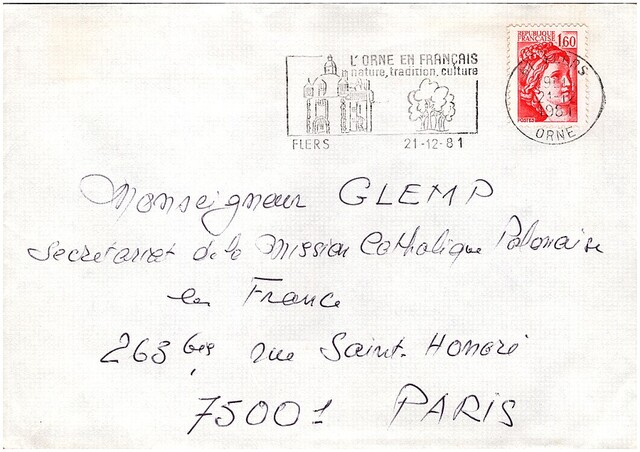 L'ORNE EN FRANÇAIS
nature, tradition, culture
FLERS 21-12-81
REPUBLIQUE FRANÇAISE 1,60
POSTES
ORNE
Monseigneur GLEMP
Secrétariat de la Mission Catholique Polonaise
en France
263 bis rue Saint-Honoré
75001 PARIS